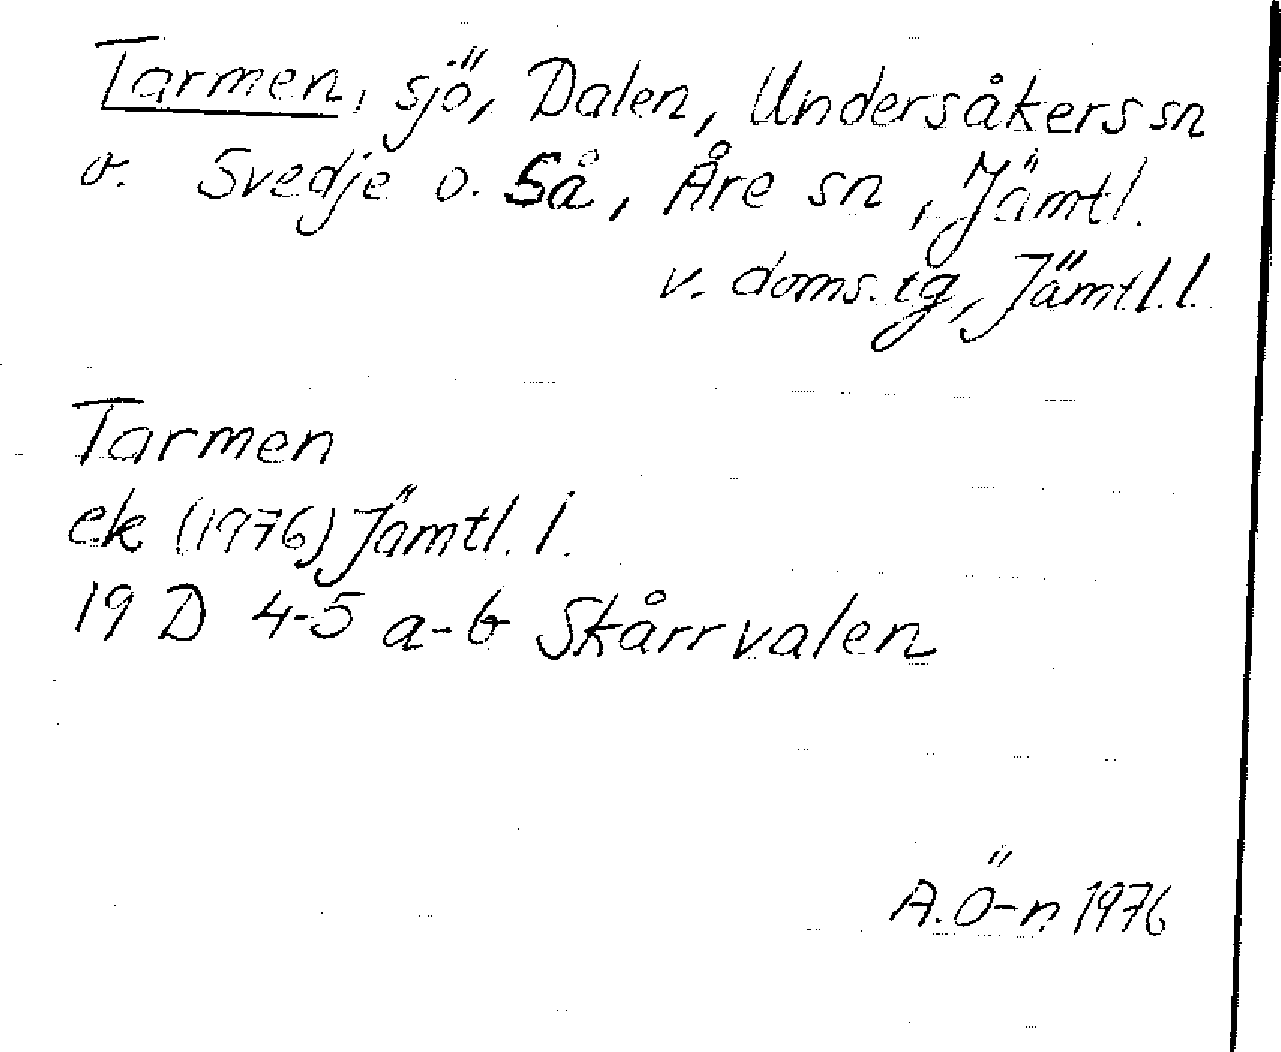 Tarmen, sjö, Dalen, Undersåkers sn
o. Svedje o. Så, Åre sn, Jämtl.
v. doms. tg, Jämtl. l.
Tarmen
ek (1976) Jämtl. l.
19 D 4-5 a-b Skårrvalen
A. Ö-n 1976